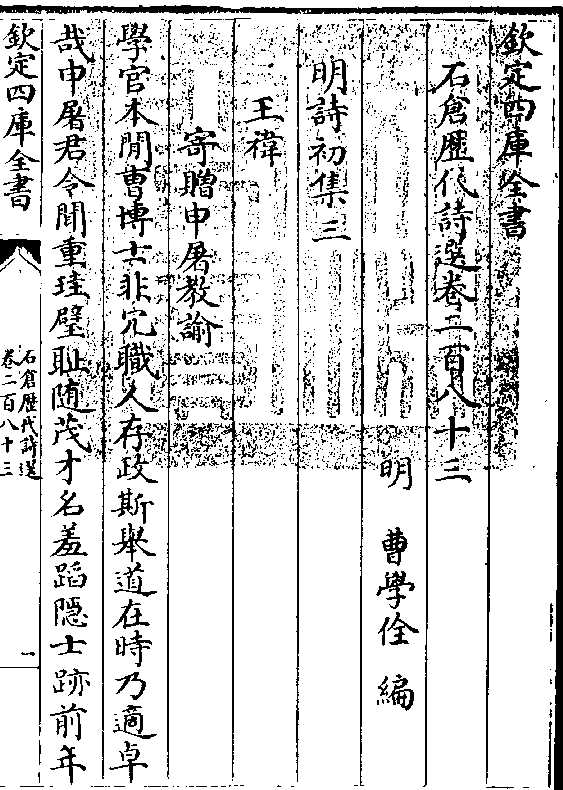 欽定四庫全書
石倉歷代詩選卷二百八十三
明 曹學佺 編
明詩初集三
王褘
寄贈申屠教諭
學官本閒曹博士非冗職人存政斯舉道在時乃適卓
哉申屠君令聞重珪璧耻随茂才名羞蹈隱士跡前年
欽定四庫全書
石倉歷代詩選
卷二百八十三
一